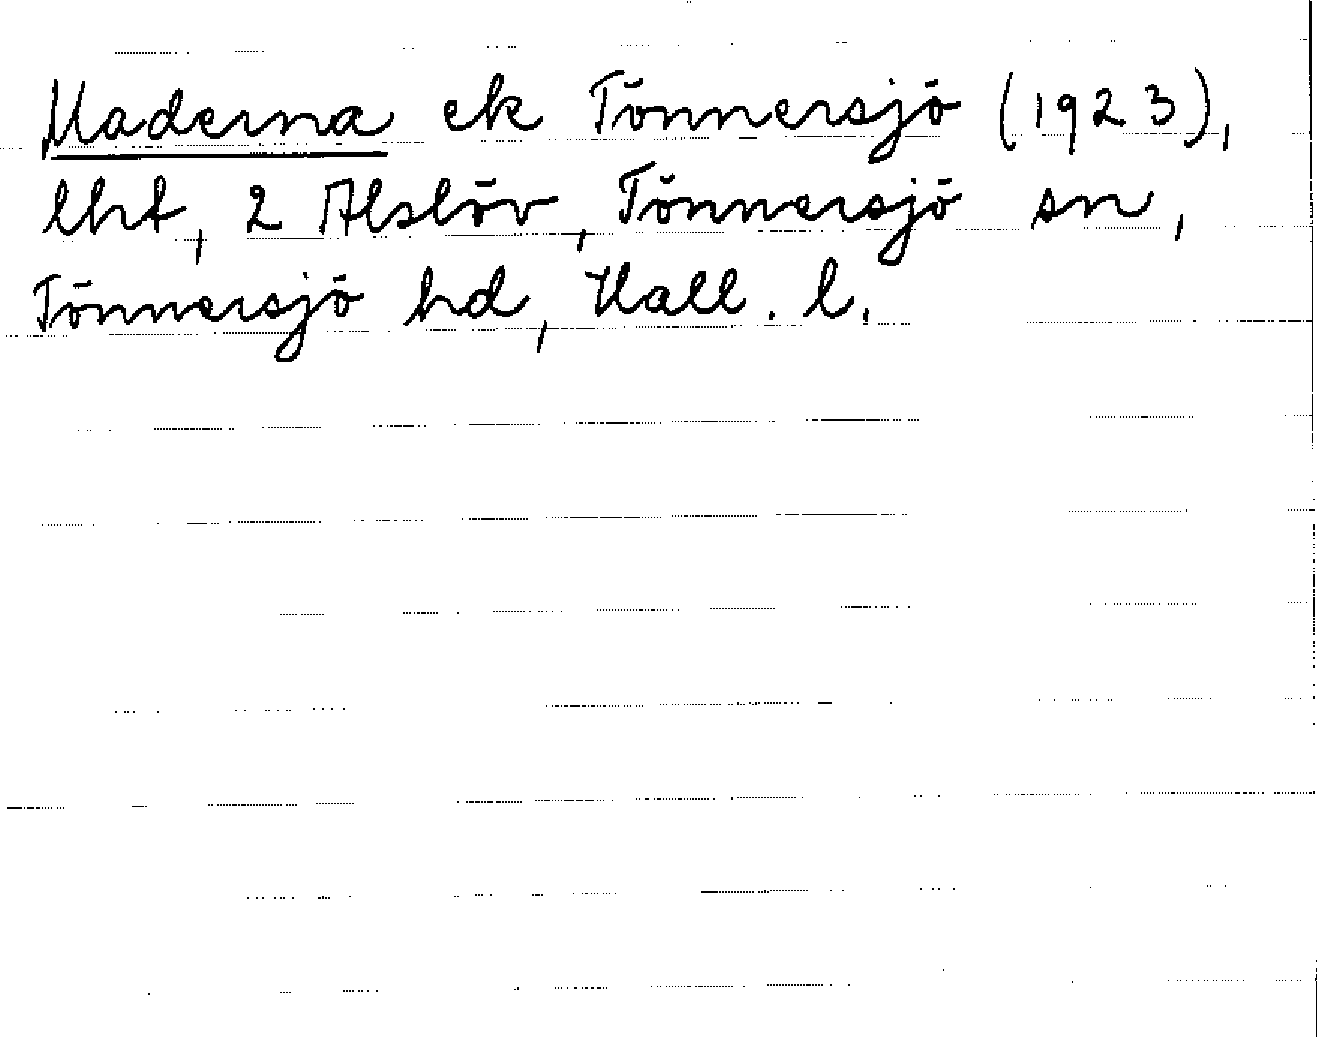 Maderna ek Tönnersjö (1923),
lht, 2 Alslöv, Tönnersjö sn,
Tönnersjö hd, Hall. l.